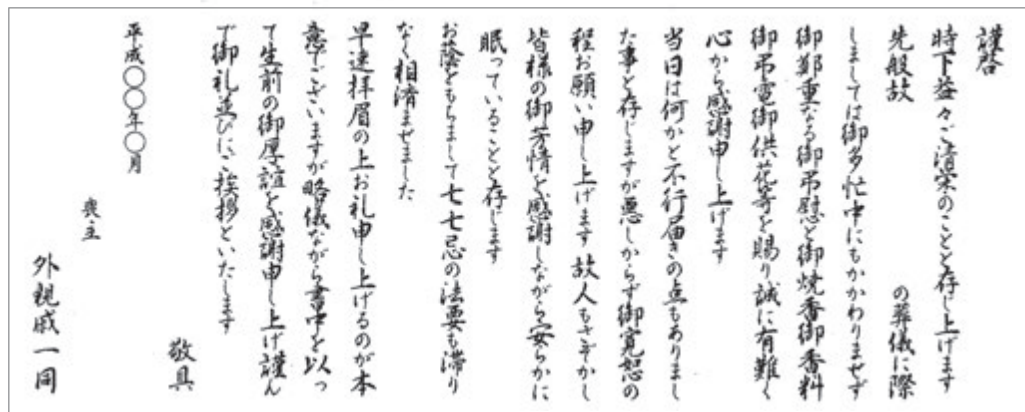 謹啓
時下益々ご清栄のことと存じ上げます
先般故　　　の葬儀に際
しましては御多忙中にもかかわりませず
御鄭重なる御弔慰と御焼香御香料
御弔電御供花等を賜り誠に有難く
心から感謝申し上げます
当日は何かと不行届きの点もありまし
た事と存じますが悪しからず御寛恕の
程お願い申し上げます故人もさぞかし
皆様の御芳情を感謝しながら安らかに
眠っていることと存じます
お陰をもちまして七七忌の法要も滞り
なく相済ませました
早速拝眉の上お礼申し上げるのが本
意でございますが略儀ながら書中を以っ
て生前の御厚誼を感謝申し上げ謹ん
で御礼並びにご挨拶といたします
敬具
平成〇〇年〇月
喪主
外親戚一同